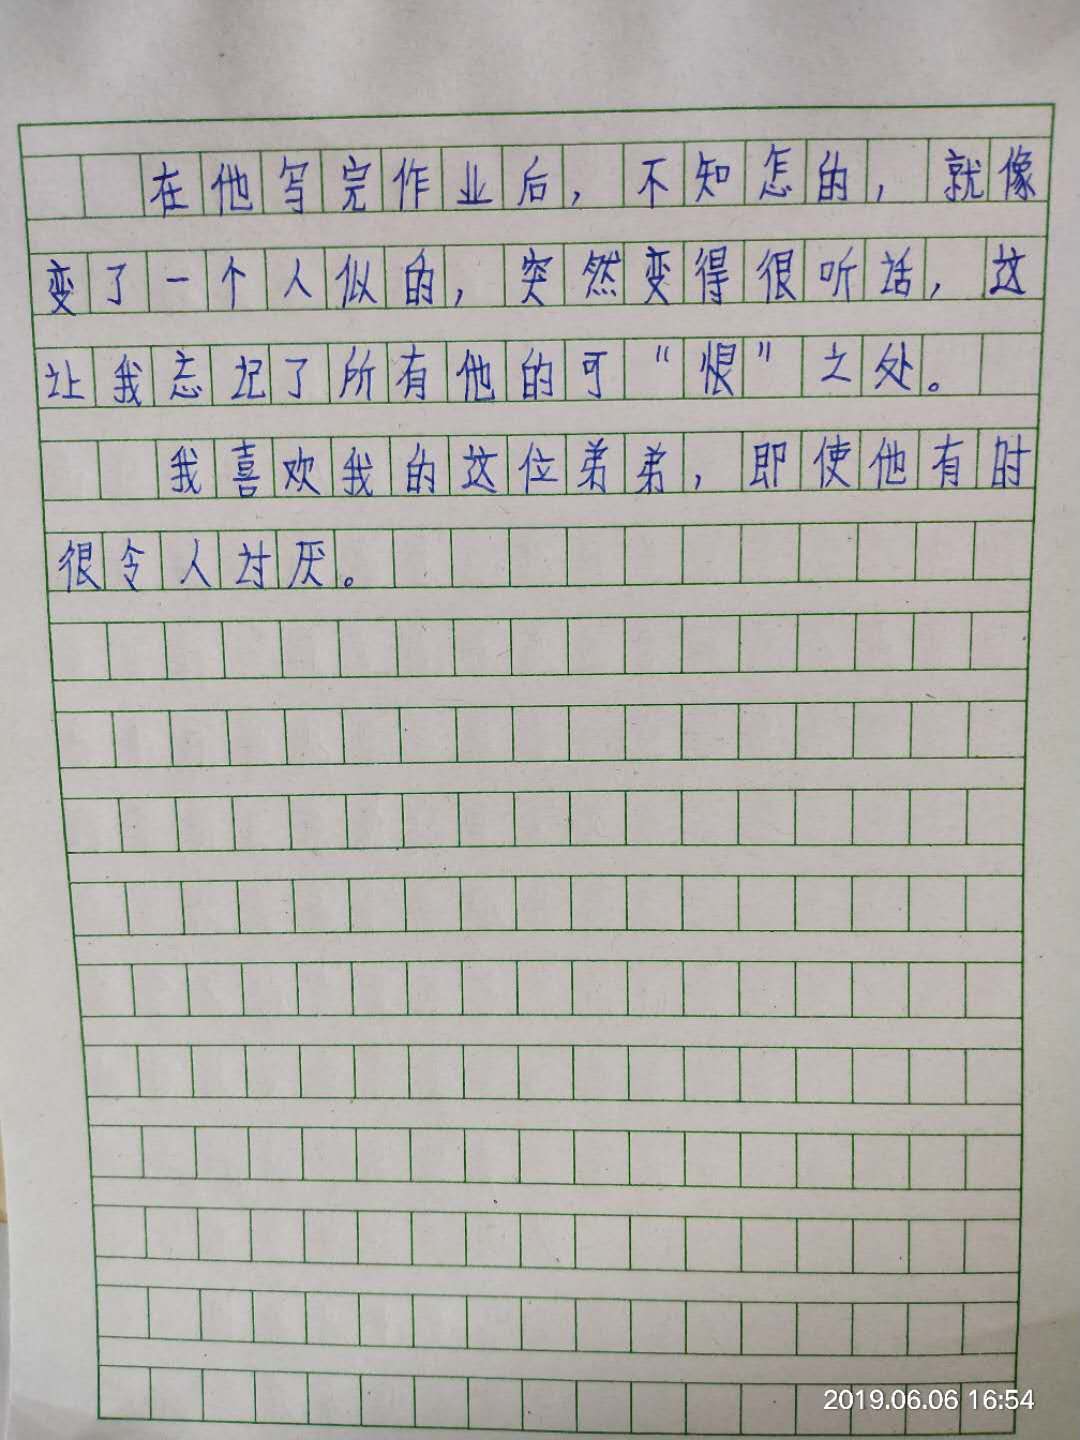 在他写完作业后，不知怎的，就像
变了一个人似的，突然变得很听话，这
让我忘记了所有他的可“恨”之处。
我喜欢我的这位弟弟，即使他有时
很令人讨厌。
2019.06.06 16:54